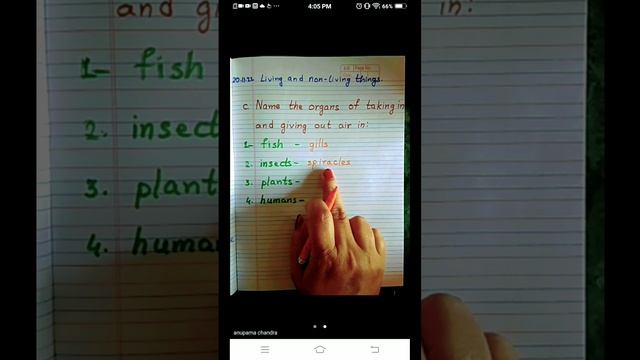 4:05 PM
66%
20.11.22 Living and non-living things.
c. Name the organs of taking in
and giving out air in:
1- fish - gills
2. insects- spiracles
3. plants-
4. humans-
anupama chandra
and gi
in:
1- fish
2. insect
3. plant
4. huma